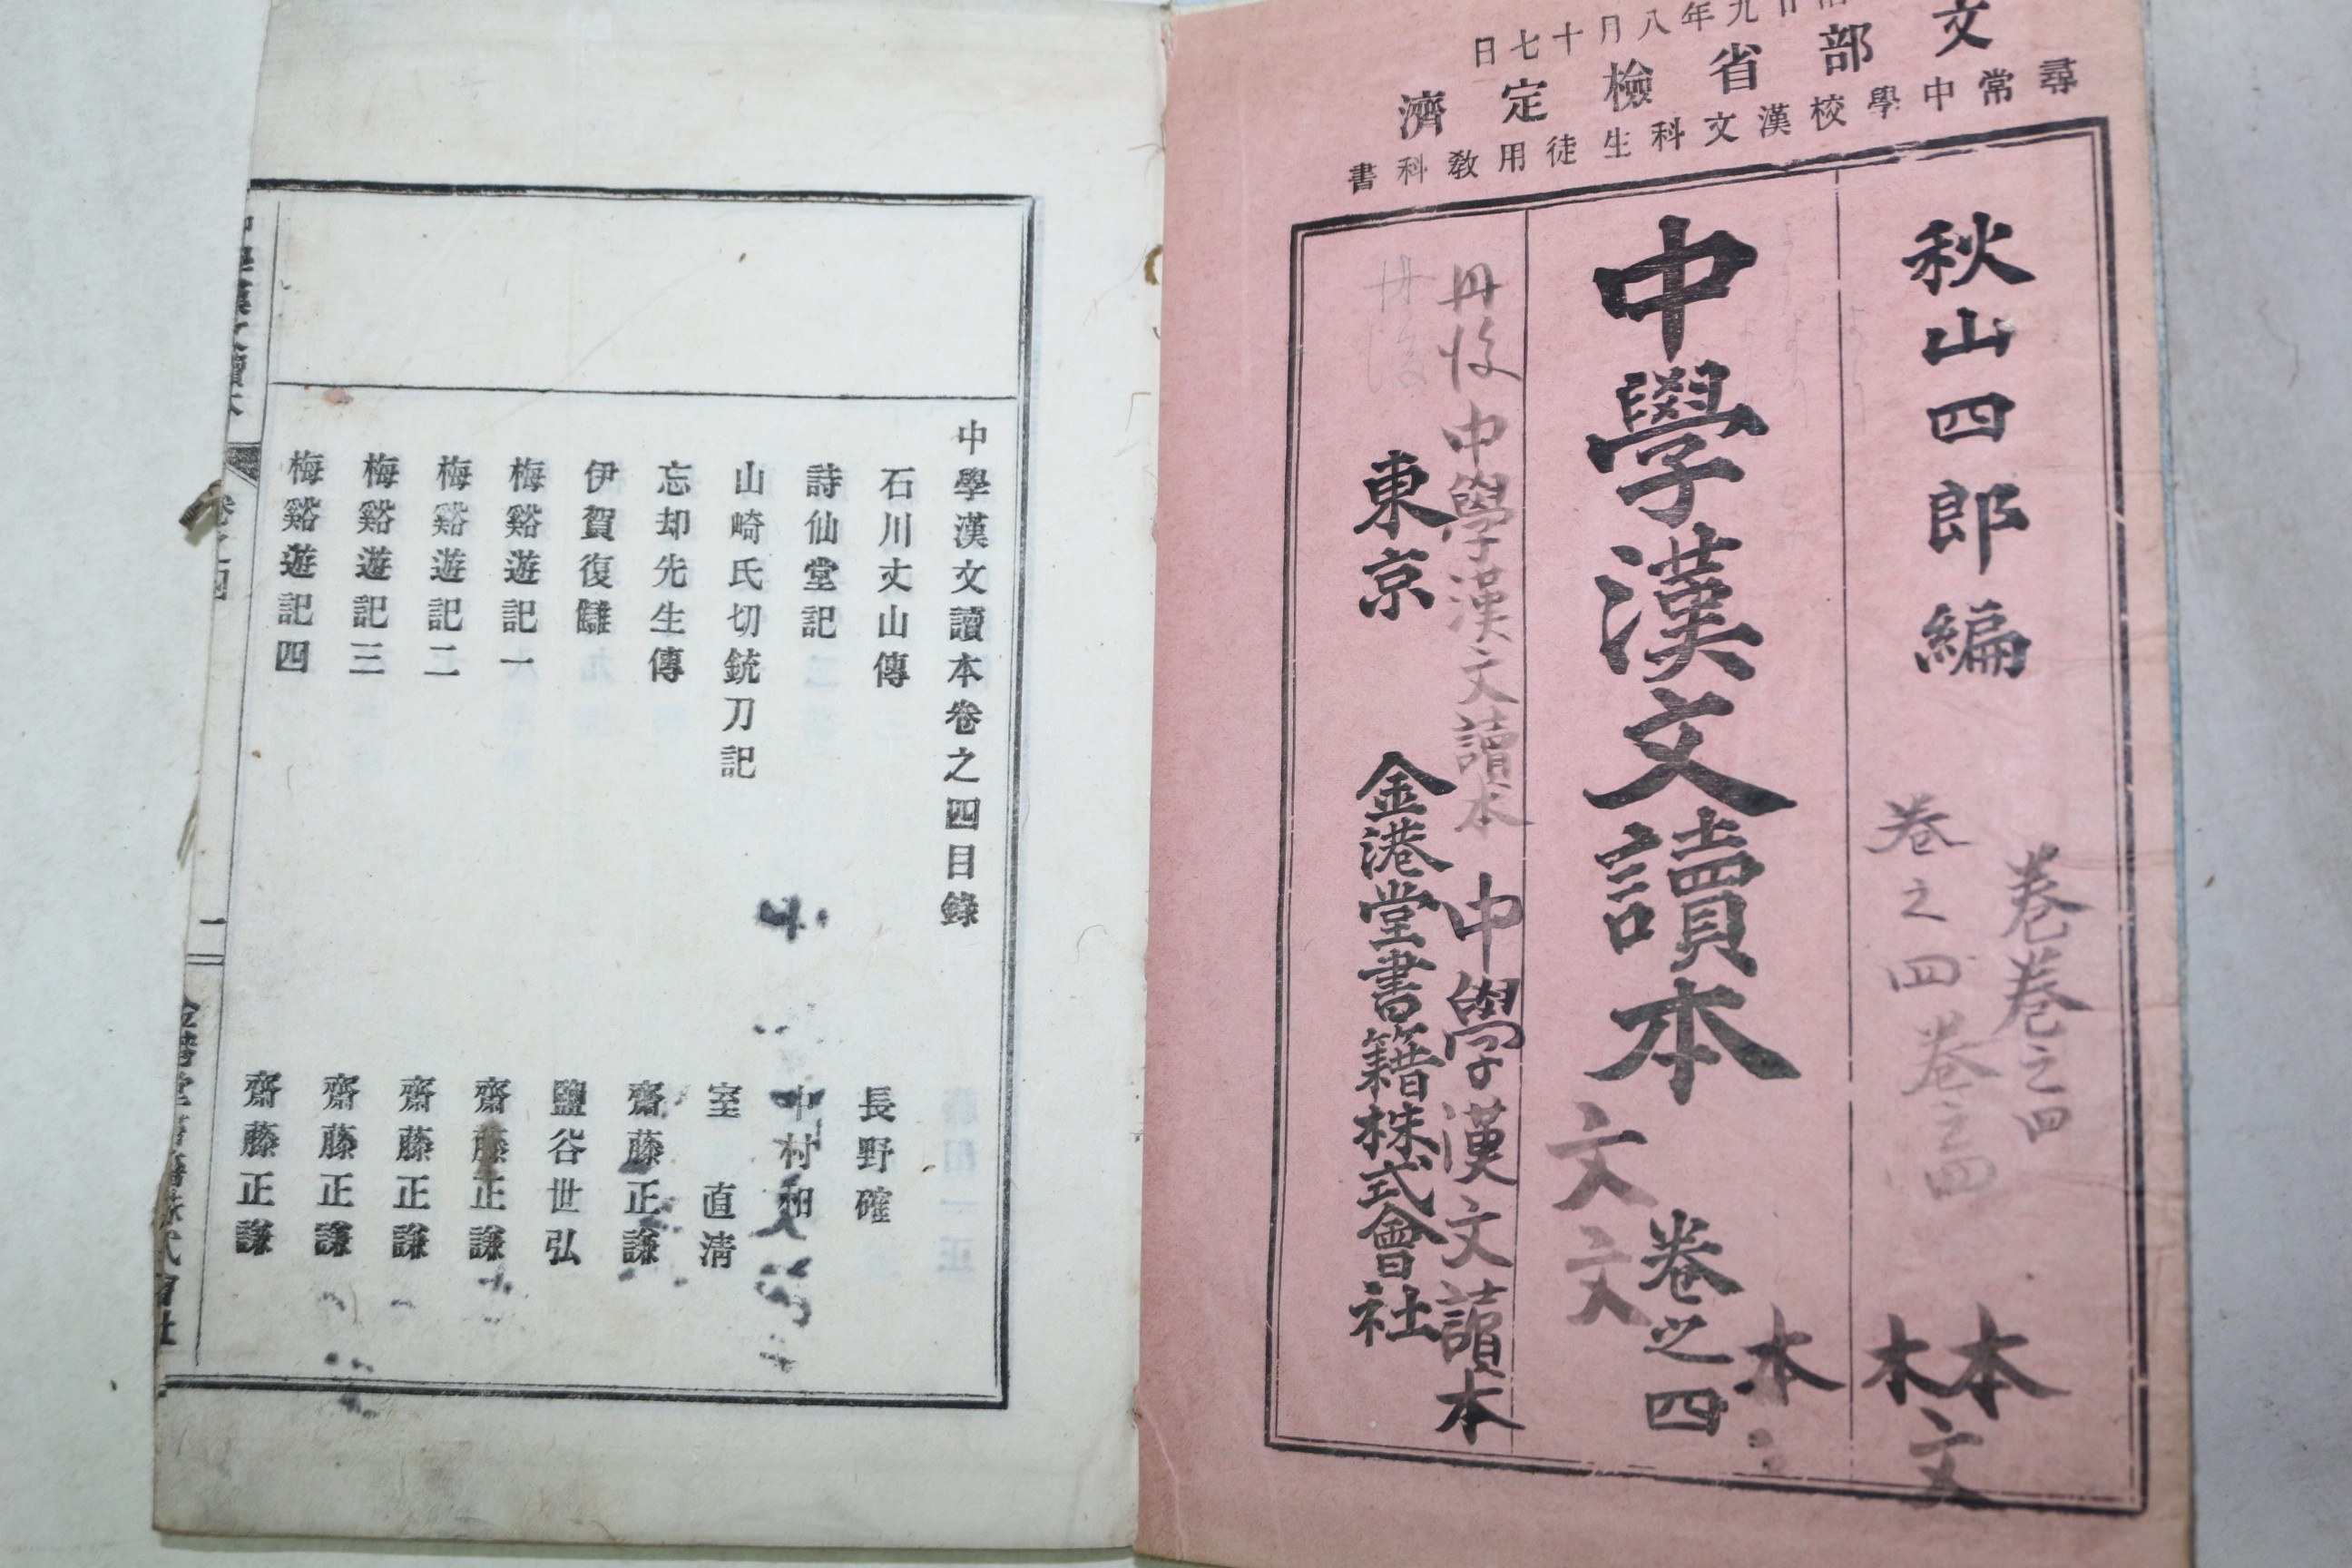 廿九年八月十七日
文部省檢定濟
尋常中學校漢文科生徒用教科書
秋山四郎編
卷之四
卷之四
卷卷之四
本本
文
本
中學漢文讀本
卷之四
文文
丹後
中學漢文讀本
中學漢文讀本
丹後
東京
金港堂書籍株式會社
中學漢文讀本卷之四目錄
石川丈山傳 長野確
詩仙堂記 中村和
山崎氏切銃刀記 室直清
忘却先生傳 齋藤正謙
伊賀復讎 鹽谷世弘
梅谿遊記一 齋藤正謙
梅谿遊記二 齋藤正謙
梅谿遊記三 齋藤正謙
梅谿遊記四 齋藤正謙
中學漢文讀本
卷之四
一
金港堂書籍株式會社